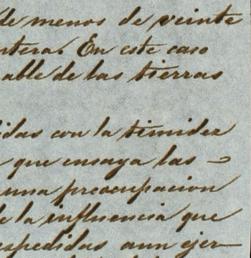 de menos de veinte
ntera. En este caso
able de las tierras
idas con la timidez
que ensaya las
una preocupacion
de la influencia que
espedidas aun ejer-